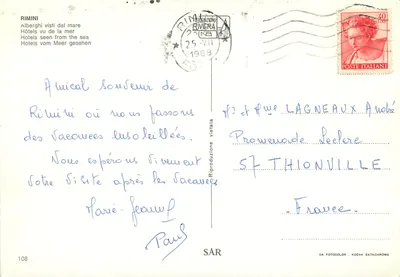 RIMINI
Alberghi visti dal mare
Hôtels vu de la mer
Hotels seen from the sea
Hotels vom Meer gesehen
RIMINI
RIVIERA
25-VII
1968
40
POSTE ITALIANE
Amical souvenir de
Rimini où nous passons
des vacances ensoleillées.
Nous espérons vivement
votre visite après les vacances.
Marie-Jeanne
Paul
Mr et Mme LAGNEAUX André
Promenade Leclerc
57 THIONVILLE
France.
Riproduzione vietata
108
SAR